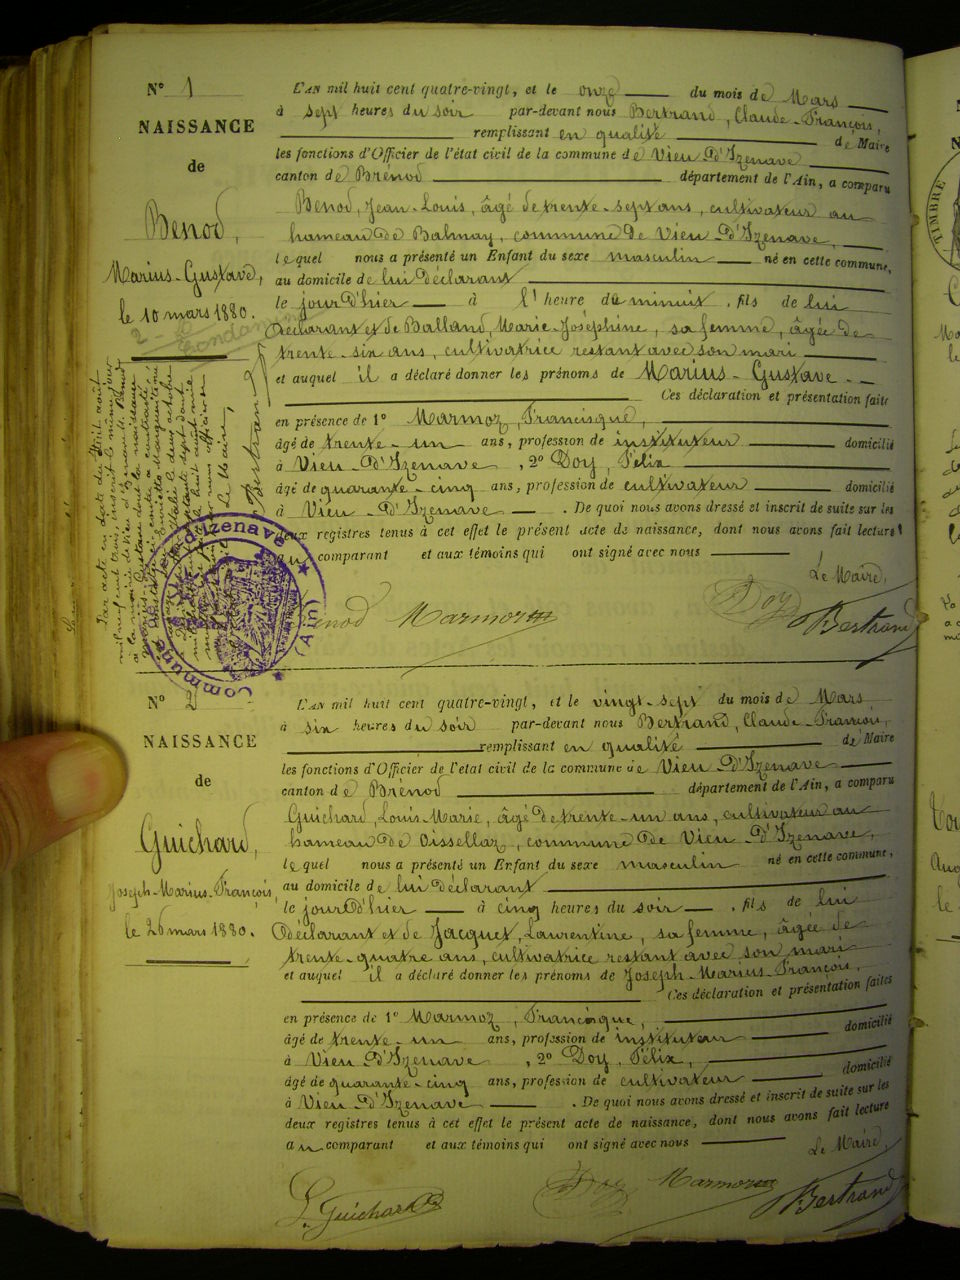 N° 1
NAISSANCE
de
Benod,
Marius-Gustave,
le 10 mars 1880.
L'AN mil huit cent quatre-vingt, et le onze du mois de Mars
à sept heures du soir par-devant nous Bertrand, Claude-François,
remplissant en qualité de Maire
les fonctions d'Officier de l'état civil de la commune de Vieu-d'Izenave
canton de Brénod département de l'Ain, a comparu
Benod, Jean-Louis, âgé de trente-sept ans, cultivateur au
hameau de Balmay, commune de Vieu-d'Izenave,
lequel nous a présenté un Enfant du sexe masculin né en cette commune,
au domicile de lui déclarant
le jour d'hier à l'heure du minuit, fils de lui
déclarant et de Balland, Marie-Joséphine, sa femme, âgée de
trente-six ans, cultivatrice restant avec son mari
et auquel il a déclaré donner les prénoms de Marius-Gustave.
Ces déclaration et présentation faites
en présence de 1° Marmoz, Francisque,
âgé de trente-un ans, profession de instituteur domicilié
à Vieu-d'Izenave, 2° Doy, Félix
âgé de quarante-cinq ans, profession de cultivateur domicilié
à Vieu-d'Izenave. De quoi nous avons dressé et inscrit de suite sur les
deux registres tenus à cet effet le présent acte de naissance, dont nous avons fait lecture
au comparant et aux témoins qui ont signé avec nous
Le Maire,
Marmoz Doy Bertrand
d'Izenave
Commune
(Ain)
Le Maire,
Bertrand
N° 2
NAISSANCE
de
Guichard,
Joseph-Marius-François,
le 26 mars 1880.
L'AN mil huit cent quatre-vingt, et le vingt-sept du mois de Mars
à six heures du soir par-devant nous Bertrand, Claude-François,
remplissant en qualité de Maire
les fonctions d'Officier de l'état civil de la commune de Vieu-d'Izenave
canton de Brénod département de l'Ain, a comparu
Guichard, Louis-Marie, âgé de trente-un ans, cultivateur au
hameau de Oissellaz, commune de Vieu-d'Izenave,
lequel nous a présenté un Enfant du sexe masculin né en cette commune,
au domicile de lui déclarant
le jour d'hier à cinq heures du soir, fils de lui
déclarant et de Jacquet, Laurentine, sa femme, âgée de
trente-quatre ans, cultivatrice restant avec son mari
et auquel il a déclaré donner les prénoms de Joseph-Marius-François,
Ces déclaration et présentation faites
en présence de 1° Marmoz, Francisque,
âgé de trente-un ans, profession de instituteur domicilié
à Vieu-d'Izenave, 2° Doy, Félix,
âgé de quarante-cinq ans, profession de cultivateur domicilié
à Vieu-d'Izenave. De quoi nous avons dressé et inscrit de suite sur les
deux registres tenus à cet effet le présent acte de naissance, dont nous avons fait lecture
au comparant et aux témoins qui ont signé avec nous
Le Maire,
L. Guichard Doy Marmoz Bertrand
TIMBRE